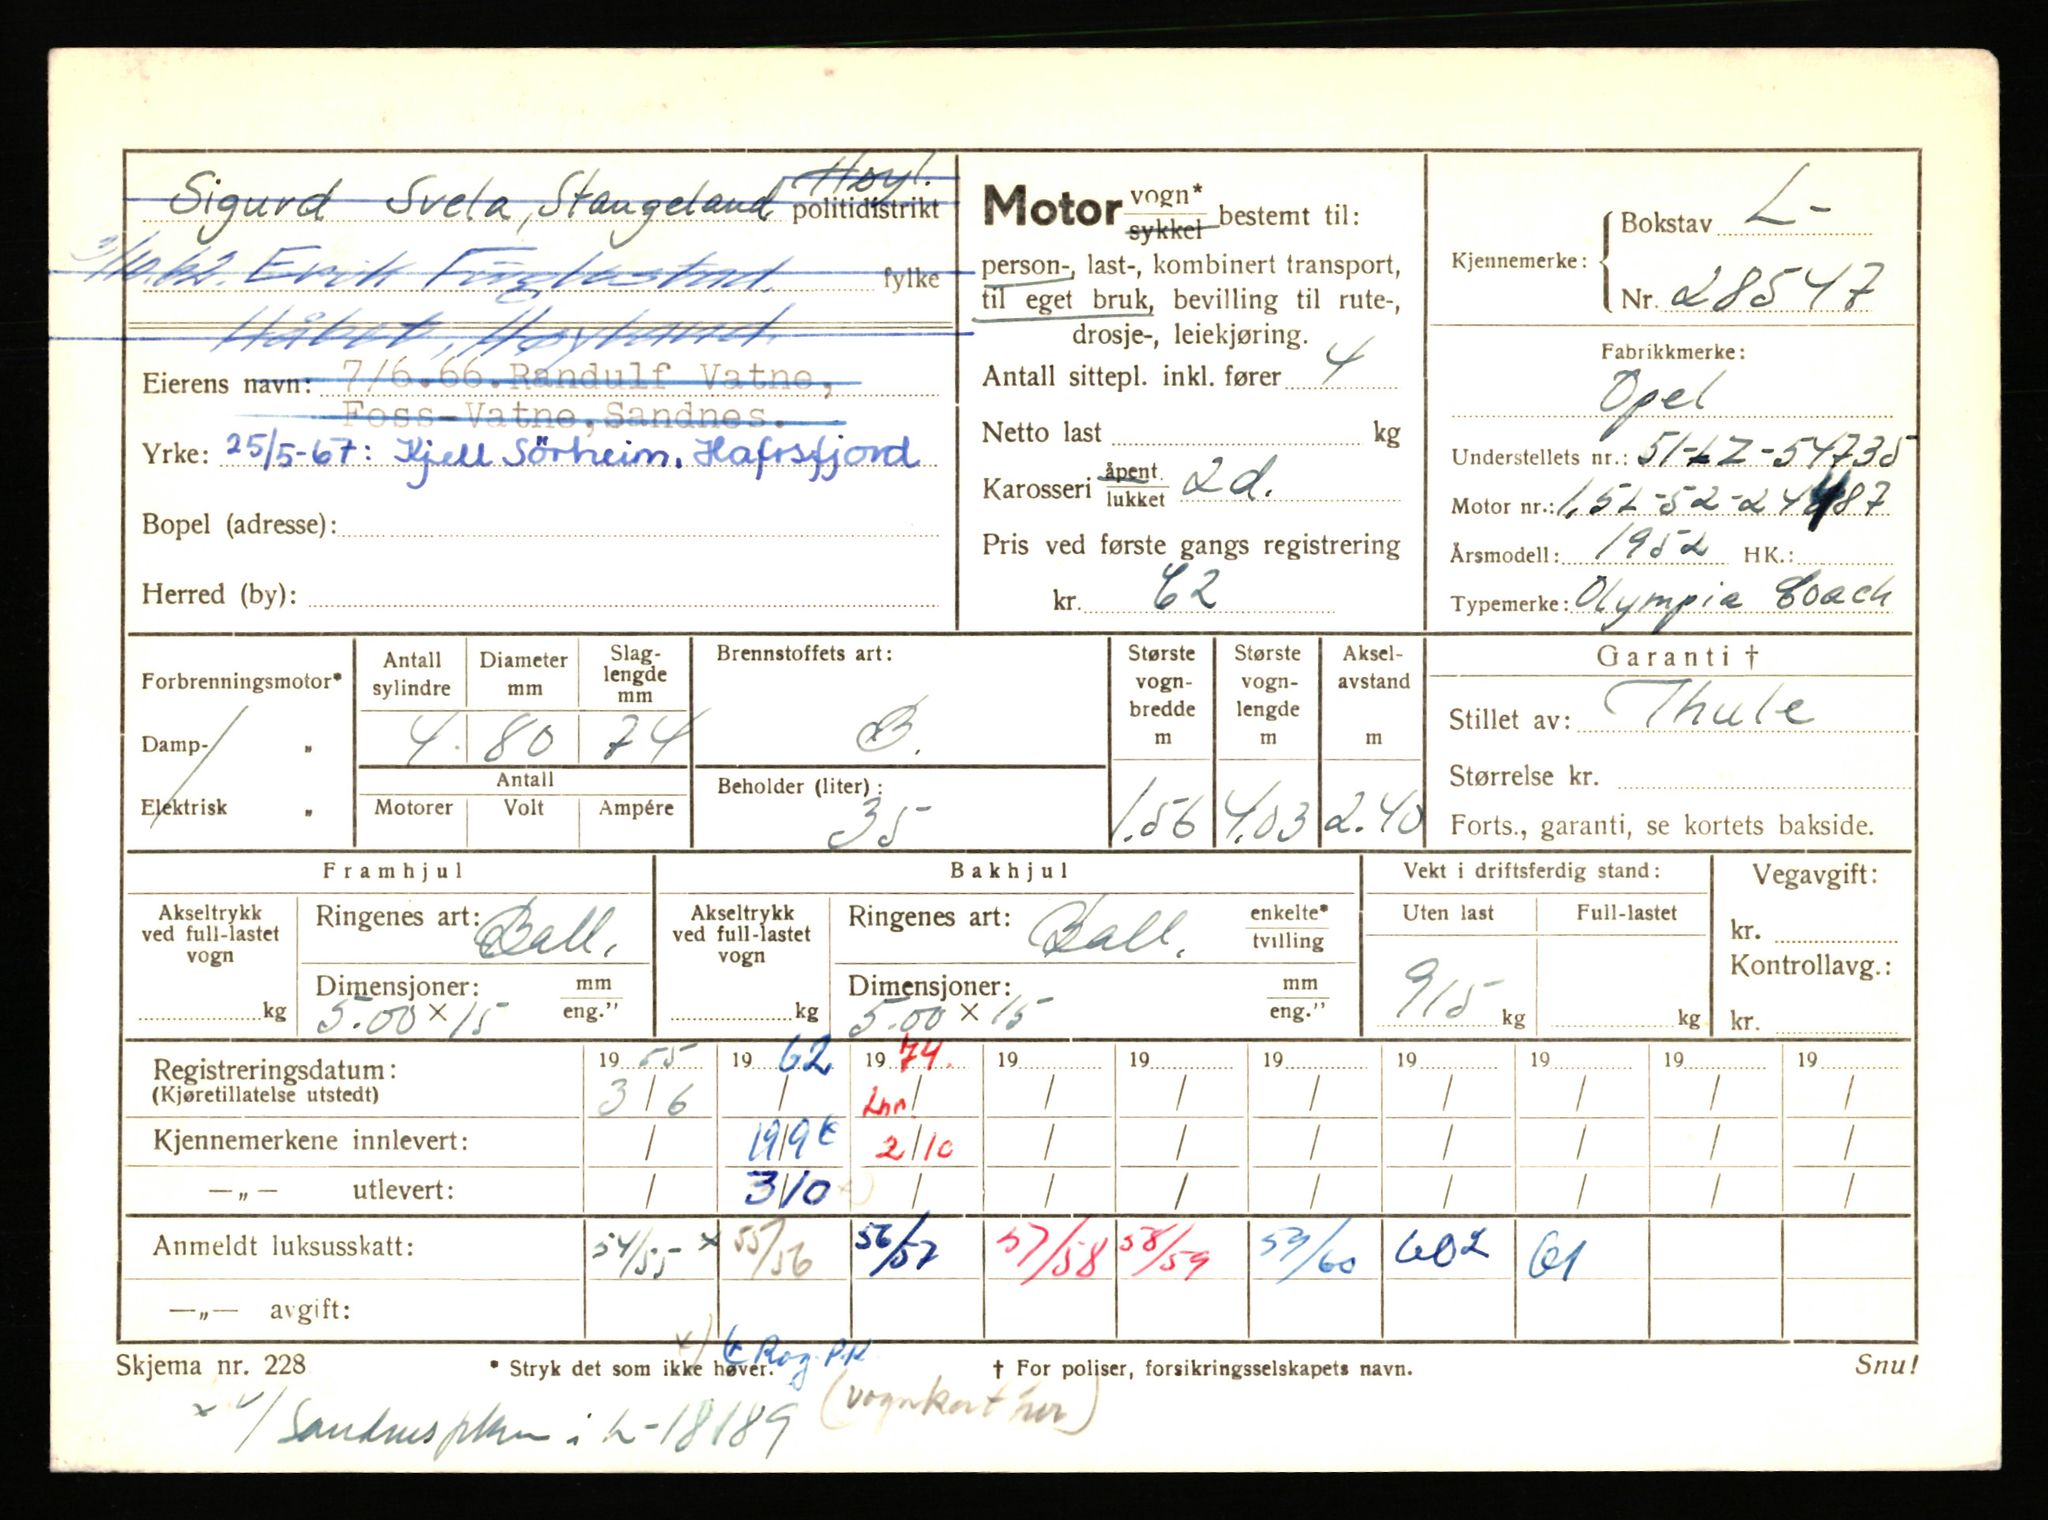 Sigurd Svela, Stangeland Høyl. politidistrikt
3/10.62. Erik Fuglestad. fylke
Håbet, Høyland
Eierens navn: 7/6.66. Randulf Vatne,
Foss-Vatne, Sandnes.
Yrke: 25/5-67: Kjell Sörheim, Hafrsfjord
Bopel (adresse):
Herred (by):
Motor vogn* sykkel bestemt til:
person-, last-, kombinert transport,
til eget bruk, bevilling til rute-,
drosje-, leiekjøring.
Antall sittepl. inkl. fører 4
Netto last kg
Karosseri åpent lukket 2d.
Pris ved første gangs registrering
kr. 62
Kjennemerke: Bokstav L-
Nr. 28547
Fabrikkmerke:
Opel
Understellets nr.: 51-LZ-54735
Motor nr.: 1,5L-52-24487
Årsmodell: 1952 HK.:
Typemerke: Olympia Coach
Forbrenningsmotor*
Damp- "
Elektrisk "
Antall sylindre Diameter mm Slag-lengde mm
4. 80 74
Antall
Motorer Volt Ampére
Brennstoffets art:
B.
Beholder (liter):
35
Største vogn-bredde m Største vogn-lengde m Aksel-avstand m
1.56 4.03 2.40
Garanti †
Stillet av: Thule
Størrelse kr.
Forts., garanti, se kortets bakside.
Framhjul
Akseltrykk ved full-lastet vogn
kg
Ringenes art: Ball.
Dimensjoner: mm eng."
5.00 × 15
Bakhjul
Akseltrykk ved full-lastet vogn
kg
Ringenes art: Ball. enkelte* tvilling
Dimensjoner: mm eng."
5.00 × 15
Vekt i driftsferdig stand:
Uten last Full-lastet
915 kg kg
Vegavgift:
kr.
Kontrollavg.:
kr.
Registreringsdatum: 19 55 19 62 19 74. 19 19 19 19 19 19 19
(Kjøretillatelse utstedt) 3/6 / Inn. / / / / / / / /
Kjennemerkene innlevert: / 19/9 2/10 / / / / / / /
—„— utlevert: / 3/10 x) / / / / / / / /
Anmeldt luksusskatt: 54/55 x 55/56 56/57 57/58 58/59 59/60 602 61
—„— avgift:
x) Rog. P.K.
Skjema nr. 228 * Stryk det som ikke høver. † For poliser, forsikringsselskapets navn. Snu!
(vognkort her)
x) Sandnes pkm i L-18189